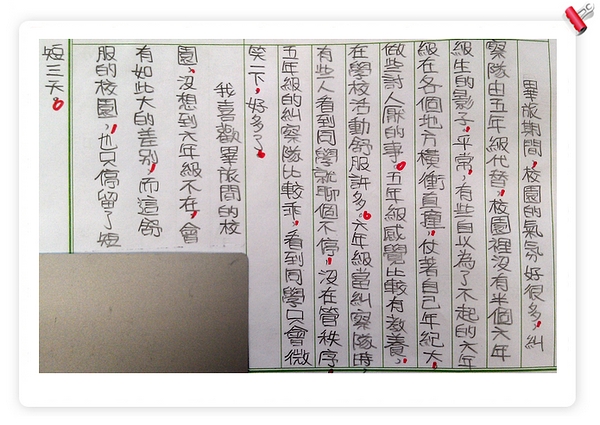 畢旅期間，校園的氣氛好很多，糾
察隊由五年級代替，校園裡沒有半個六年
級生的影子，平常，有些自以為了不起的六年
級在各個地方橫衝直撞，仗著自己年紀大，
做些討人厭的事。五年級感覺比較有教養，
在學校活動舒服許多。六年級當糾察隊時，
有些人看到同學就聊個不停，沒在管秩序，
五年級的糾察隊比較乖，看到同學只會微
笑一下，好多了。
我喜歡畢旅間的校
園，沒想到六年級不在，會
有如此大的差別，而這舒
服的校園，也只停留了短
短三天。